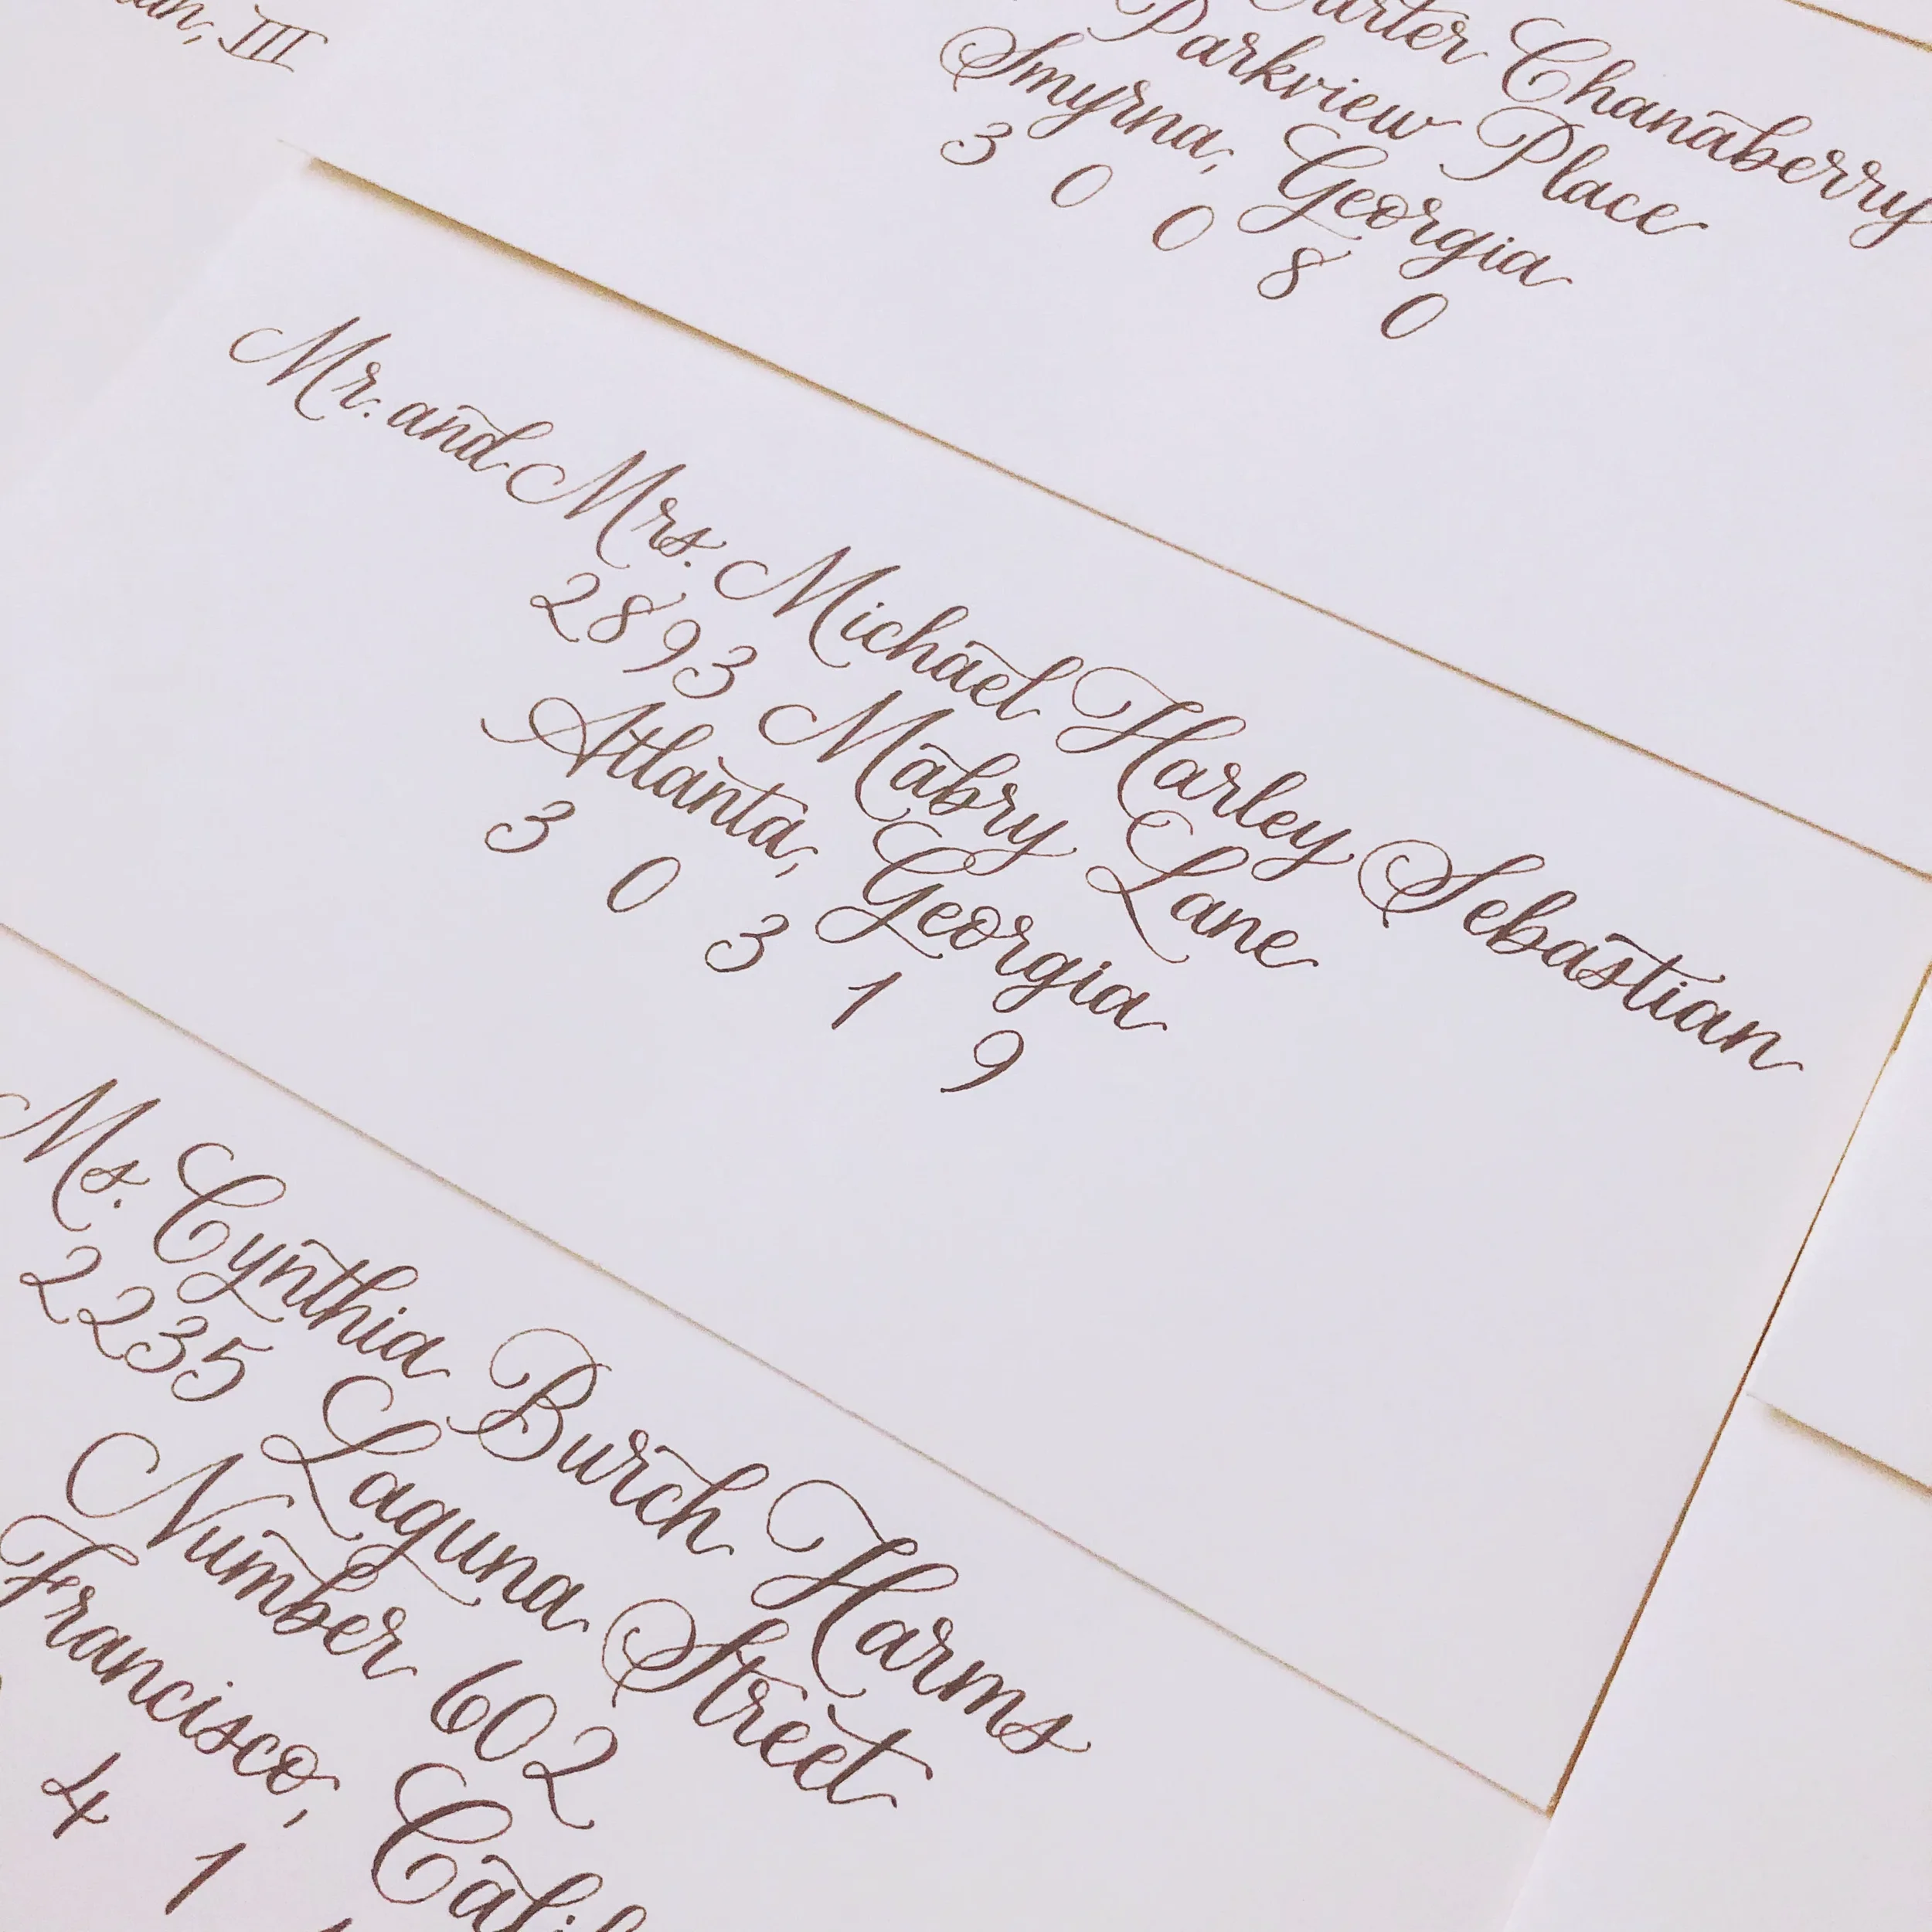 III
Chanaberry
Parkview Place
Smyrna, Georgia
3 0 0 8 0
Mr. and Mrs. Michael Harley Sebastian
2893 Mabry Lane
Atlanta, Georgia
3 0 3 1 9
Ms. Cynthia Burch Harms
2235 Laguna Street
Number 602
Francisco,
4 1